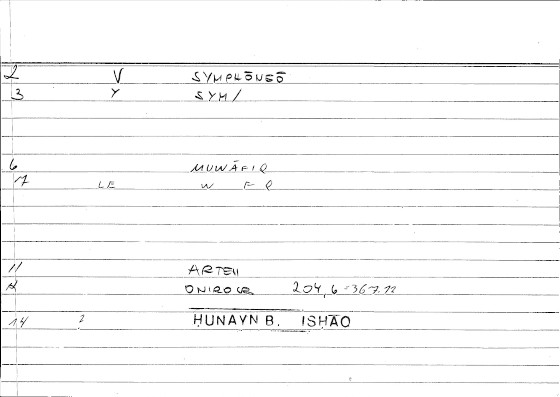 2 V SYMPHŌNEŌ
3 Y SYM/
6 MUWĀFIQ
7 LE W F Q
11 ARTEM
12 ONIROCR 204,6=367.12
14 2 HUNAYN B. ISHĀQ